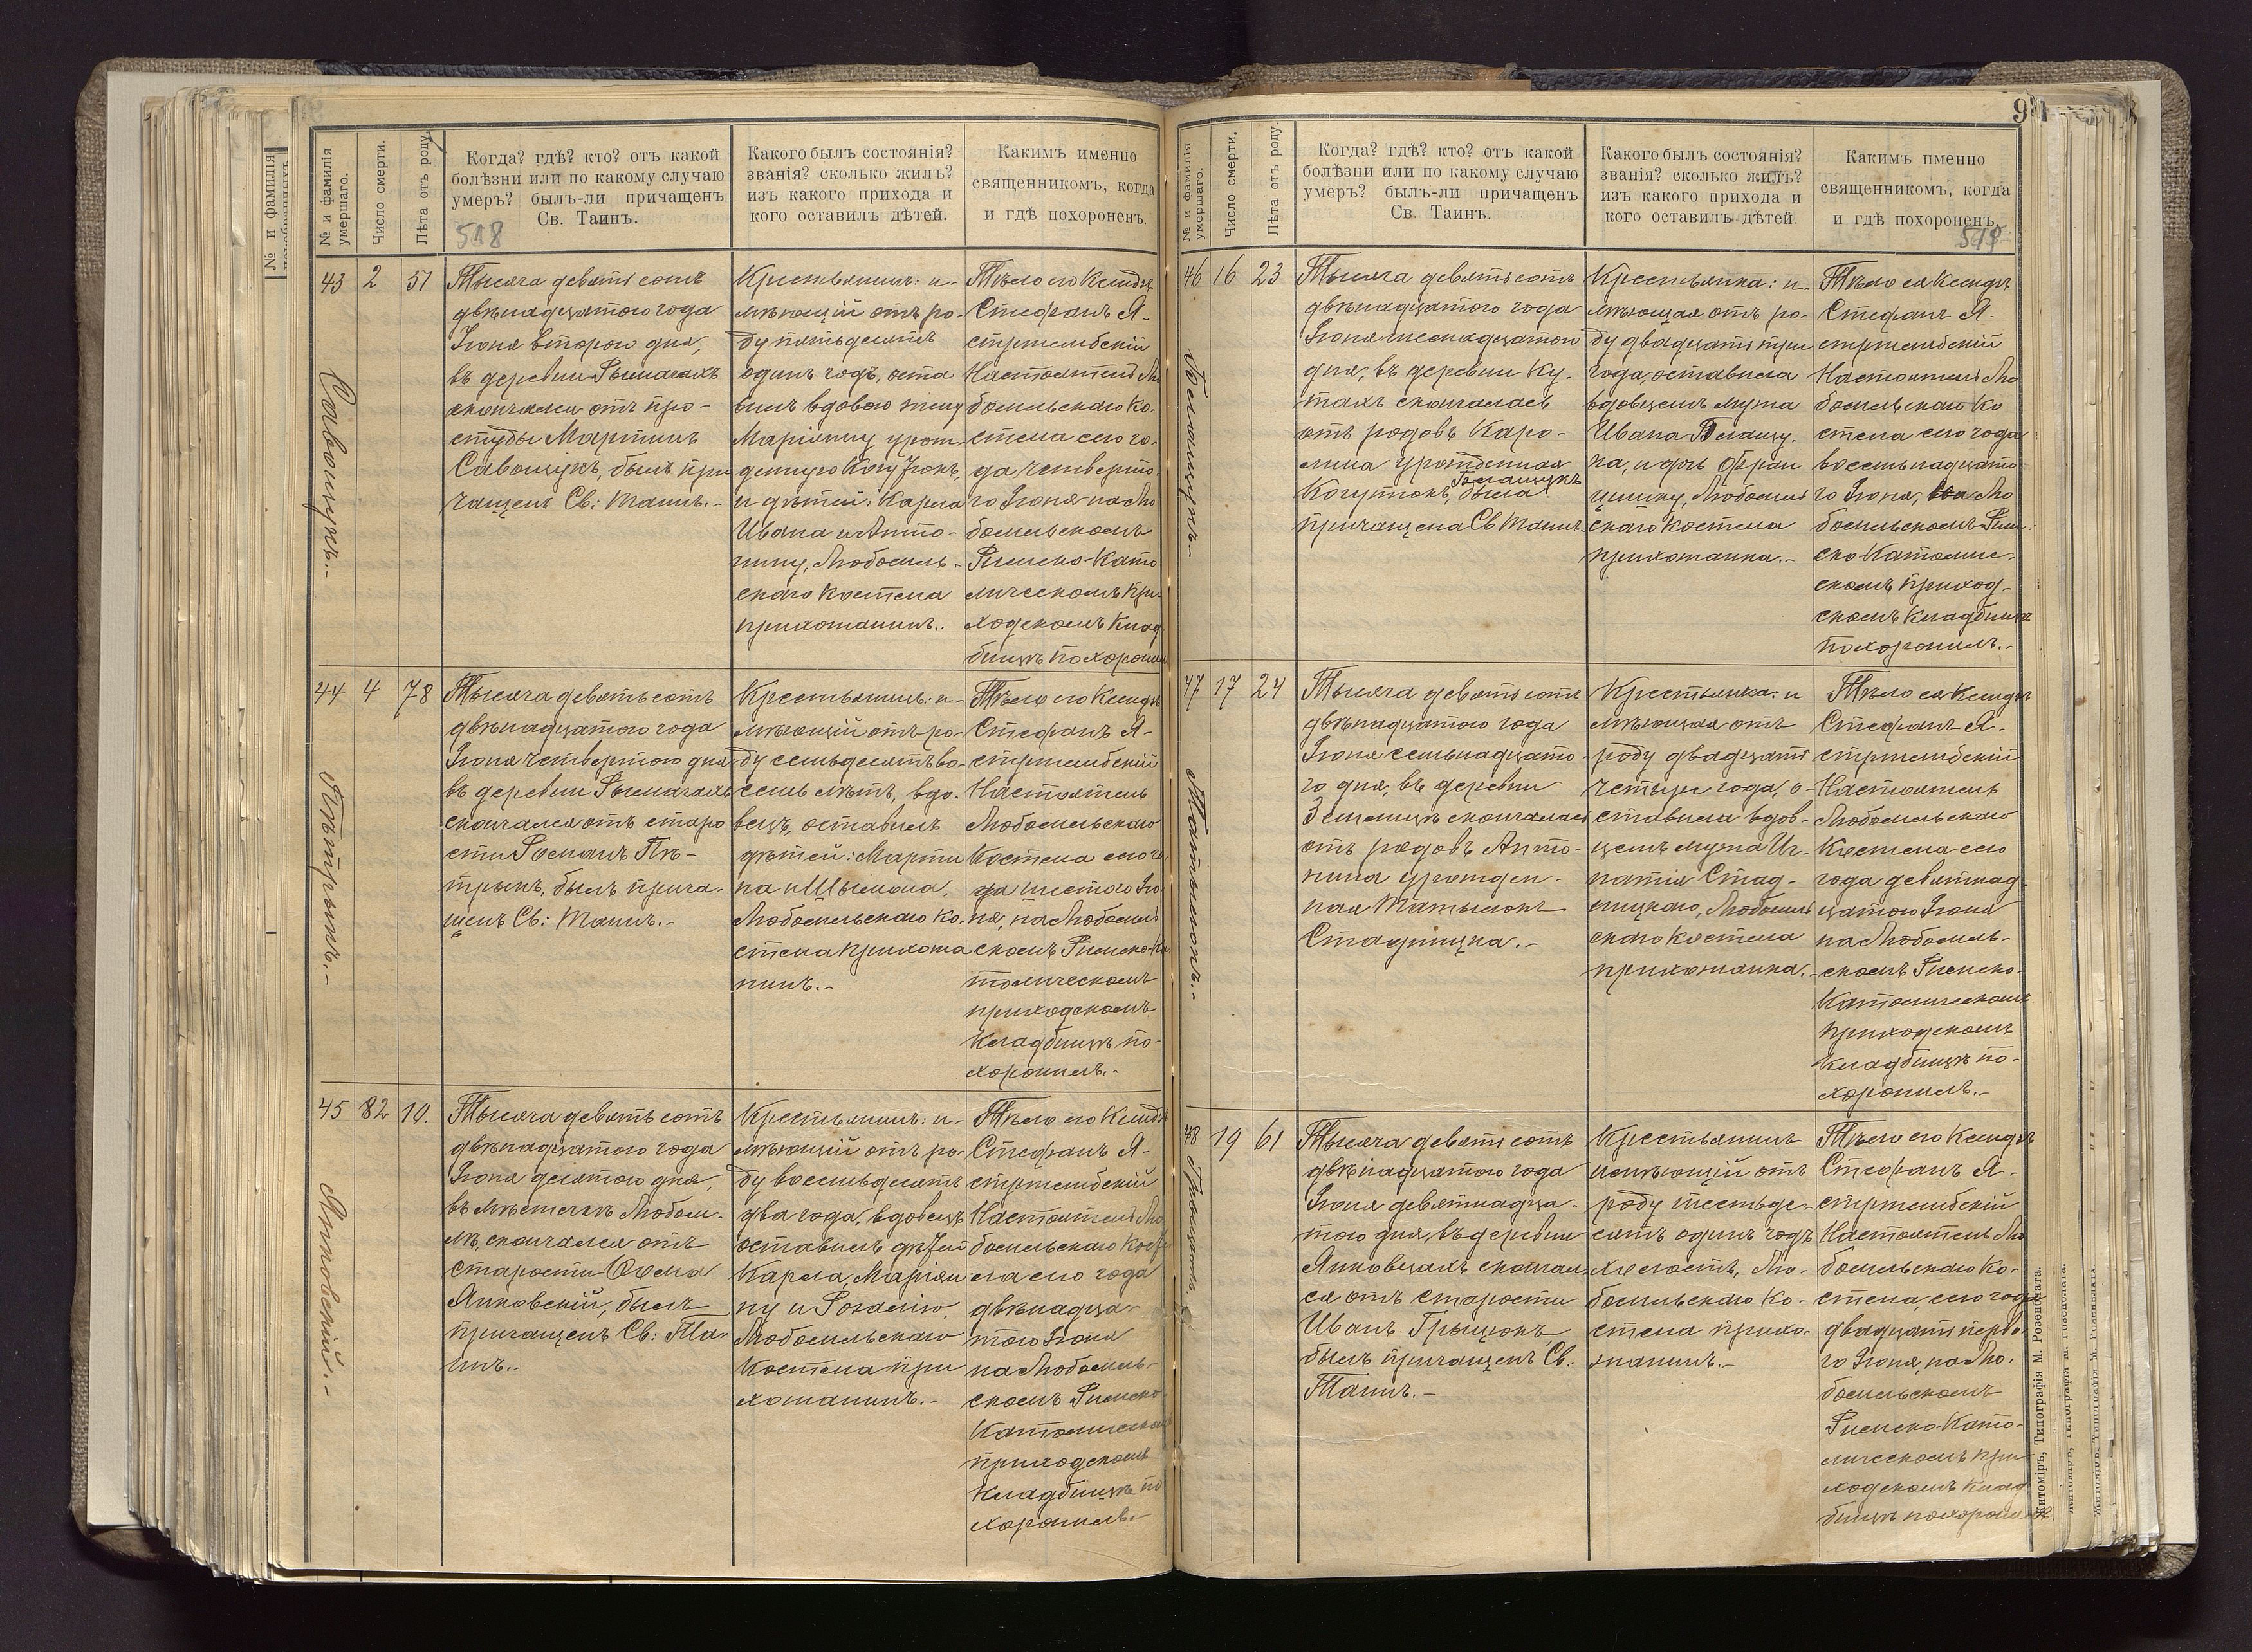 № и фамилія
умершаго.
Число смерти.
Лѣта отъ роду.
Когда? гдѣ? кто? отъ какой
болѣзни или по какому случаю
умеръ? былъ-ли причащенъ
Св. Таинъ.
518
Какого былъ состоянія?
званія? сколько жилъ?
изъ какого прихода и
кого оставилъ дѣтей.
Какимъ именно
священникомъ, когда
и гдѣ похороненъ.
43
Савощукъ.-
2
51
Тысяча девятьсотъ
двѣнадцатого года
Іюня второго дня,
въ деревни Рымачахъ
скончался отъ про-
студы Мартинъ
Савощукъ, былъ при
чащенъ Св: Таинъ.-
Крестьянинъ: и-
мѣющій отъ ро-
ду пятьдесятъ
одинъ годъ, оста
вилъ вдовою жену
Маріянну урож-
денную Когутюкъ,
и дѣтей: Карла
Ивана и Анто-
нину, Любомль-
скаго костела
прихожанинъ..
Тѣло его Ксендзъ
Стефанъ Я-
стржембскій
Настоятель Лю
бомльскаго Ко-
стела сего го-
да четверто-
го Іюня на Лю
бомльскомъ
Римско-Като
лическомъ при
ходскомъ клад-
бищѣ похоронилъ
44
Пѣтрыкъ.-
4
78
Тысяча девятьсотъ
двѣнадцатого года
Іюня четвертого дня
въ деревни Рымачахъ
скончался отъ старо
сти Романъ Пѣ-
трыкъ, былъ прича-
щенъ Св: Таинъ.-
Крестьянинъ: и-
мѣющій отъ ро-
ду семьдесятъ во-
семь лѣтъ, вдо-
вецъ, оставилъ
дѣтей: Марти
на и Шымона,
Любомльскаго Ко-
стела прихожа
нинъ.-
Тѣло его Ксендзъ
Стефанъ Я-
стржембскій
Настоятель
Любомльскаго
Костела сего го-
да шестого Ію
ня, на Любомль
скомъ Римско-Ка
толическомъ
приходскомъ
Кладбищѣ по-
хоронилъ.-
45
Янковскій.-
82
10.
Тысяча девятьсотъ
двѣнадцатого года
Іюня десятого дня,
въ мѣстечкѣ Любом-
лѣ, скончался отъ
старости Ѳома
Янковскій, былъ
причащенъ Св: Та-
инъ.-
Крестьянинъ: и-
мѣющій отъ ро-
ду восемьдесятъ
два года, вдовецъ
оставилъ дѣтей
Карла, Маріян
ну и Розалію,
Любомльскаго
Костела при
хожанинъ.-
Тѣло его Ксендзъ
Стефанъ Я-
стржембскій
Настоятель Лю
бомльскаго Кост
ела сего года
двѣнадца-
того Іюня
на Любомль-
скомъ Римско-
Католическомъ
приходскомъ
Кладбищѣ по
хоронилъ.-
№ и фамилія
умершаго.
Число смерти.
Лѣта отъ роду.
Когда? гдѣ? кто? отъ какой
болѣзни или по какому случаю
умеръ? былъ-ли причащенъ
Св. Таинъ.
Какого былъ состоянія?
званія? сколько жилъ?
изъ какого прихода и
кого оставилъ дѣтей.
Какимъ именно
священникомъ, когда
и гдѣ похороненъ.
519
46
16
23
Тысяча девятьсотъ
двѣнадцатого года
Іюня шеснадцатого
дня, въ деревни Ку-
тахъ скончалась
отъ родовъ Каро-
лина урожденная
Когутюкъ, Белащукъ была
причащена Св Таинъ.
Крестьянка: и-
мѣющая отъ ро-
ду двадцать три
года, оставила
вдовцемъ мужа
Ивана Белащу-
ка, и дочь Фран
цишку, Любомль
скаго Костела
прихожанка.-
Тѣло ея Ксендзъ
Стефанъ Я-
стржембскій
Настоятель Лю
бомльскаго Ко
стела сего года
восемьнадцато
го Іюня, на Лю
бомльскомъ Рим-
ско-Католиче-
скомъ приход-
скомъ Кладбищѣ
похоронилъ.-
47
17
24
Тысяча девятьсотъ
двѣнадцатого года
Іюня семьнадцато-
го дня, въ деревни
скончалась
отъ родовъ Анто-
нина урожден-
ная
Стадницка.-
Крестьянка: и
мѣющая отъ
роду двадцать
четыре года, о-
ставила вдов-
цемъ мужа Иг-
натія Стад-
ницкаго, Любомль
скаго Костела
прихожанка.-
Тѣло ея Ксендзъ
Стефанъ Я-
стржембскій
Настоятель
Любомльскаго
Костела сего
года девятнад-
цатого Іюня
на Любомль-
скомъ Римско-
Католическомъ
приходскомъ
Кладбищѣ по-
хоронилъ.-
48
19
61
Тысяча девятьсотъ
двѣнадцатого года
Іюня девятнадца-
того дня, въ деревни
Янковцахъ скончал-
ся отъ старости
Иванъ Грыцюкъ
былъ причащенъ Св:
Таинъ.-
Крестьянинъ
имѣющій отъ
роду шестьде-
сятъ одинъ годъ
холостъ, Лю-
бомльскаго Ко-
стела прихо-
жанинъ.-
Тѣло его Ксендзъ
Стефанъ Я-
стржембскій
Настоятель Лю
бомльскаго Ко-
стела, сего года
двадцать перво-
го Іюня, на Лю-
бомльскомъ
Римско-Като-
лическомъ при
ходскомъ Клад
бищѣ похоронилъ
Житоміръ, Типографія М. Розенблата.